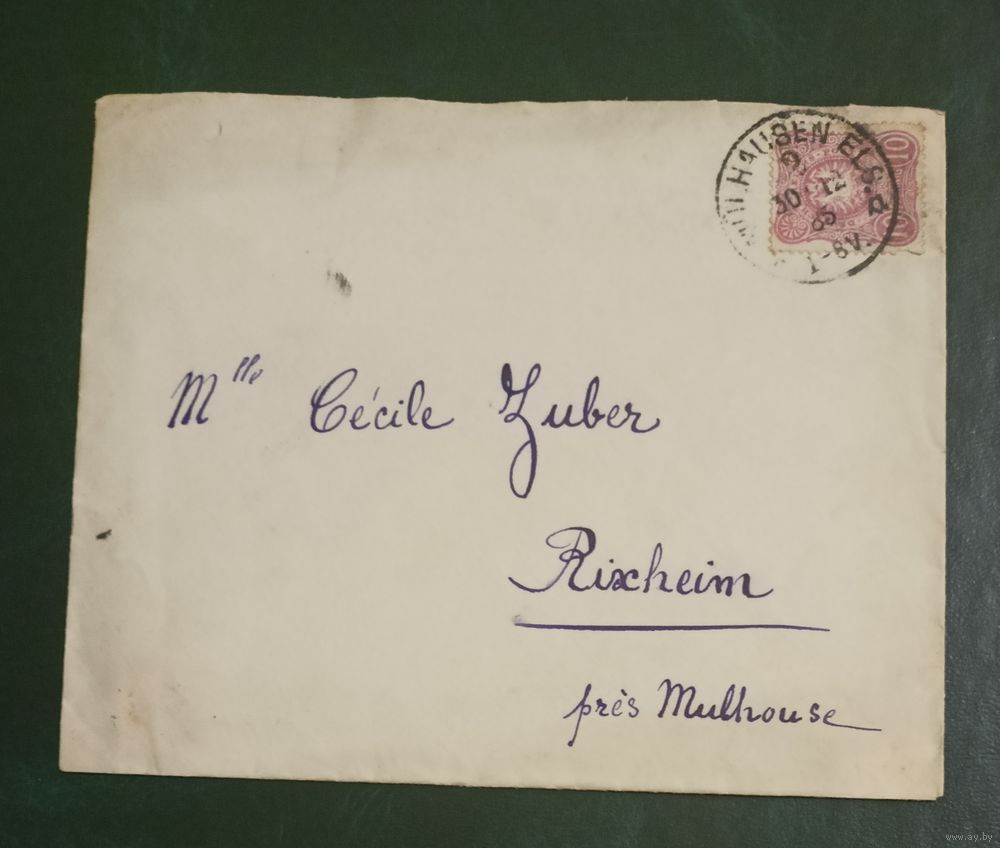 MÜLHAUSEN ELS.
2
30 12
85
1-8V.
10
10
Mlle Cécile Zuber
Rixheim
près Mulhouse
www.ay.by